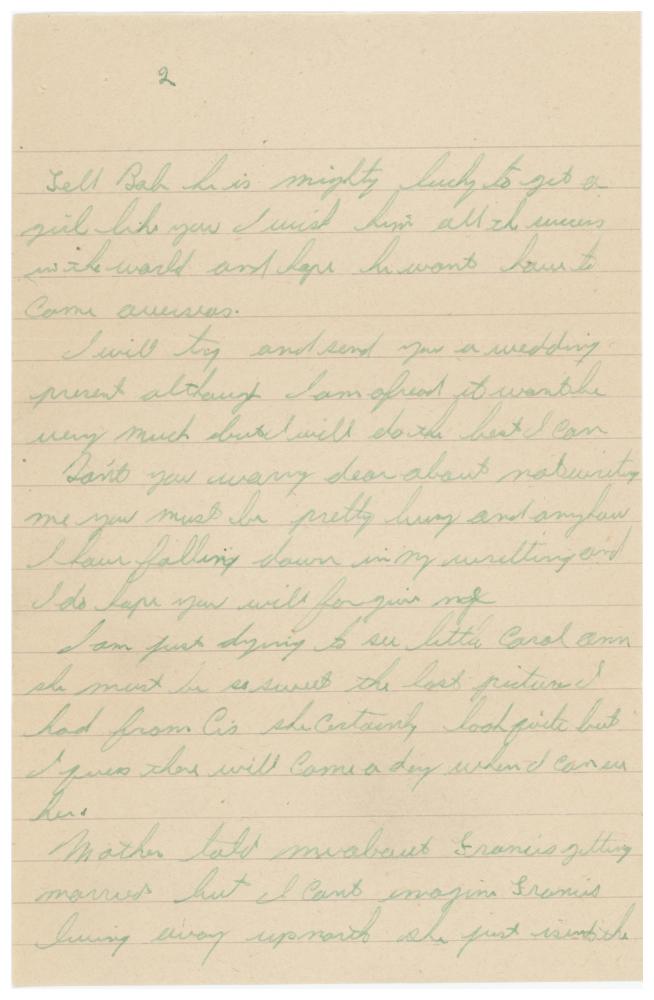 2
Tell Bob he is mighty lucky to get a
girl like you I wish him all the succes
in the world and hope he wont have to
Come overseas.
I will try and send you a wedding
present although I am afread it wont be
very much but I will do the best I can
Dont you worry dear about not writing
me you must be pretty busy and anyhow
I have falling down in my writting and
I do hope you will forgive me
I am just dying to see little Carol ann
she must be so sweet the last picture I
had from Cis she certainly look quite but
I guess there will Come a day when I can see
her.
Mother told me about Francis getting
married but I Cant imagine Francis
living away up north she just isent the